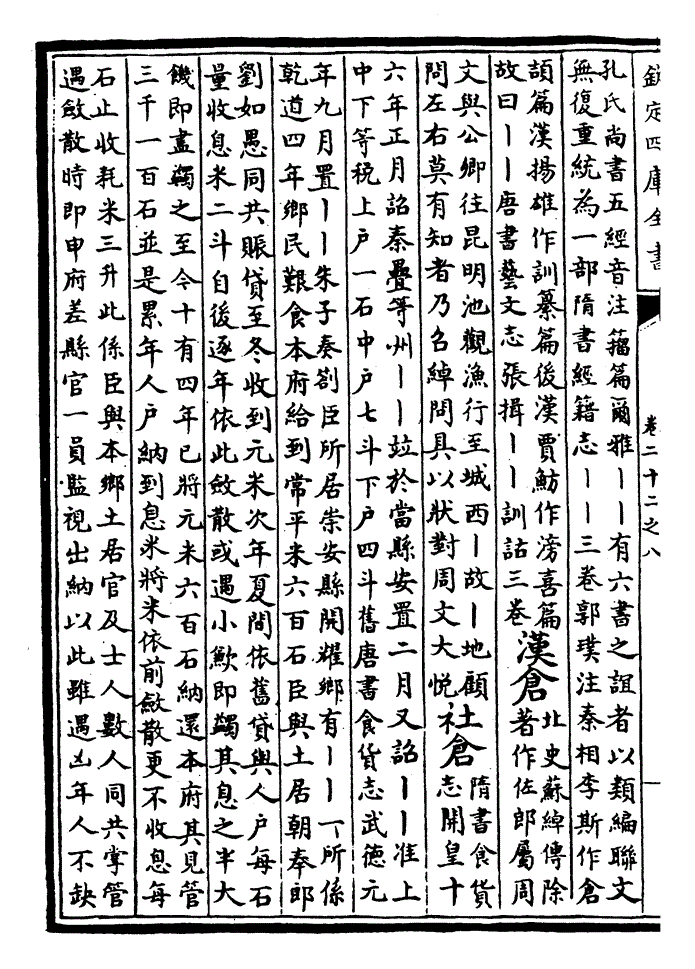 欽定四庫全書 卷二十二之八
孔氏尚書五經音注籀篇爾雅｜｜有六書之誼者以類編聯文
無復重統為一部隋書經籍志｜｜三卷郭璞注秦相李斯作倉
頡篇漢揚雄作訓纂篇後漢賈魴作滂喜篇
故曰｜｜唐書藝文志張揖｜｜訓詁三卷
漢倉
北史蘇綽傳除
著作佐郎屬周
文與公卿往昆明池觀漁行至城西｜故｜地顧
問左右莫有知者乃召綽問具以狀對周文大悅
社倉
隋書食貨
志開皇十
六年正月詔秦疊等州｜｜竝於當縣安置二月又詔｜｜准上
中下等稅上戶一石中戶七斗下戶四斗舊唐書食貨志武德元
年九月置｜｜朱子奏劄臣所居崇安縣開耀鄉有｜｜一所係
乾道四年鄉民艱食本府給到常平米六百石臣與土居朝奉郎
劉如愚同共賑貸至冬收到元米次年夏間依舊貸與人戶每石
量收息米二斗自後逐年依此斂散或遇小歉即蠲其息之半大
饑即盡蠲之至今十有四年已將元米六百石納還本府其見管
三千一百石並是累年人戶納到息米將米依前斂散更不收息每
石止收耗米三升此係臣與本鄉土居官及士人數人同共掌管
遇斂散時即申府差縣官一員監視出納以此雖遇凶年人不缺